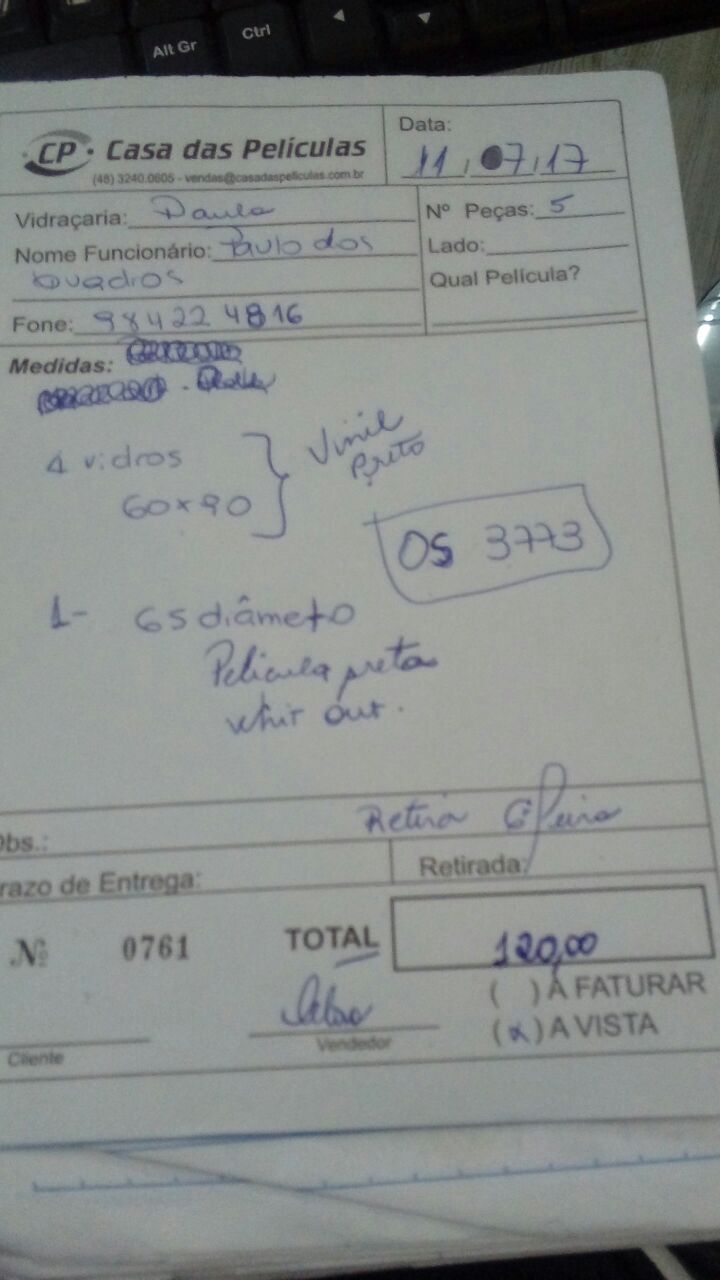 Alt Gr
Ctrl
CP · Casa das Películas
(48) 3240.0605 - vendas@casadaspeliculas.com.br
Data:
11, 07, 17
Vidraçaria: Paulo
Nº Peças: 5
Nome Funcionário: Paulo dos
Quadros
Lado:
Qual Película?
Fone: 984224816
Medidas:
4 vidros
60x90
Vinil
Preto
OS 3773
1- 65 diâmeto
Pelicula preta
whit out.
Obs.:
Retira 6ª feira
razo de Entrega:
Retirada:
Nº 0761
TOTAL
120,00
( ) A FATURAR
(x) A VISTA
Cliente
Vendedor